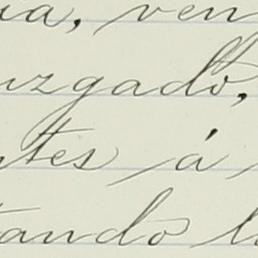 ia, ven
uzgado,
ntes á
tando l